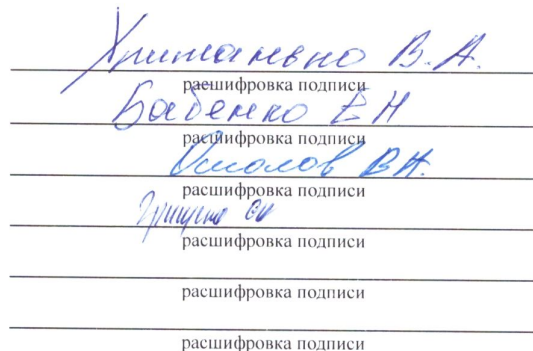 В.А.
расшифровка подписи
Бабенко Е Н
расшифровка подписи
В.Н.
расшифровка подписи
расшифровка подписи
расшифровка подписи
расшифровка подписи